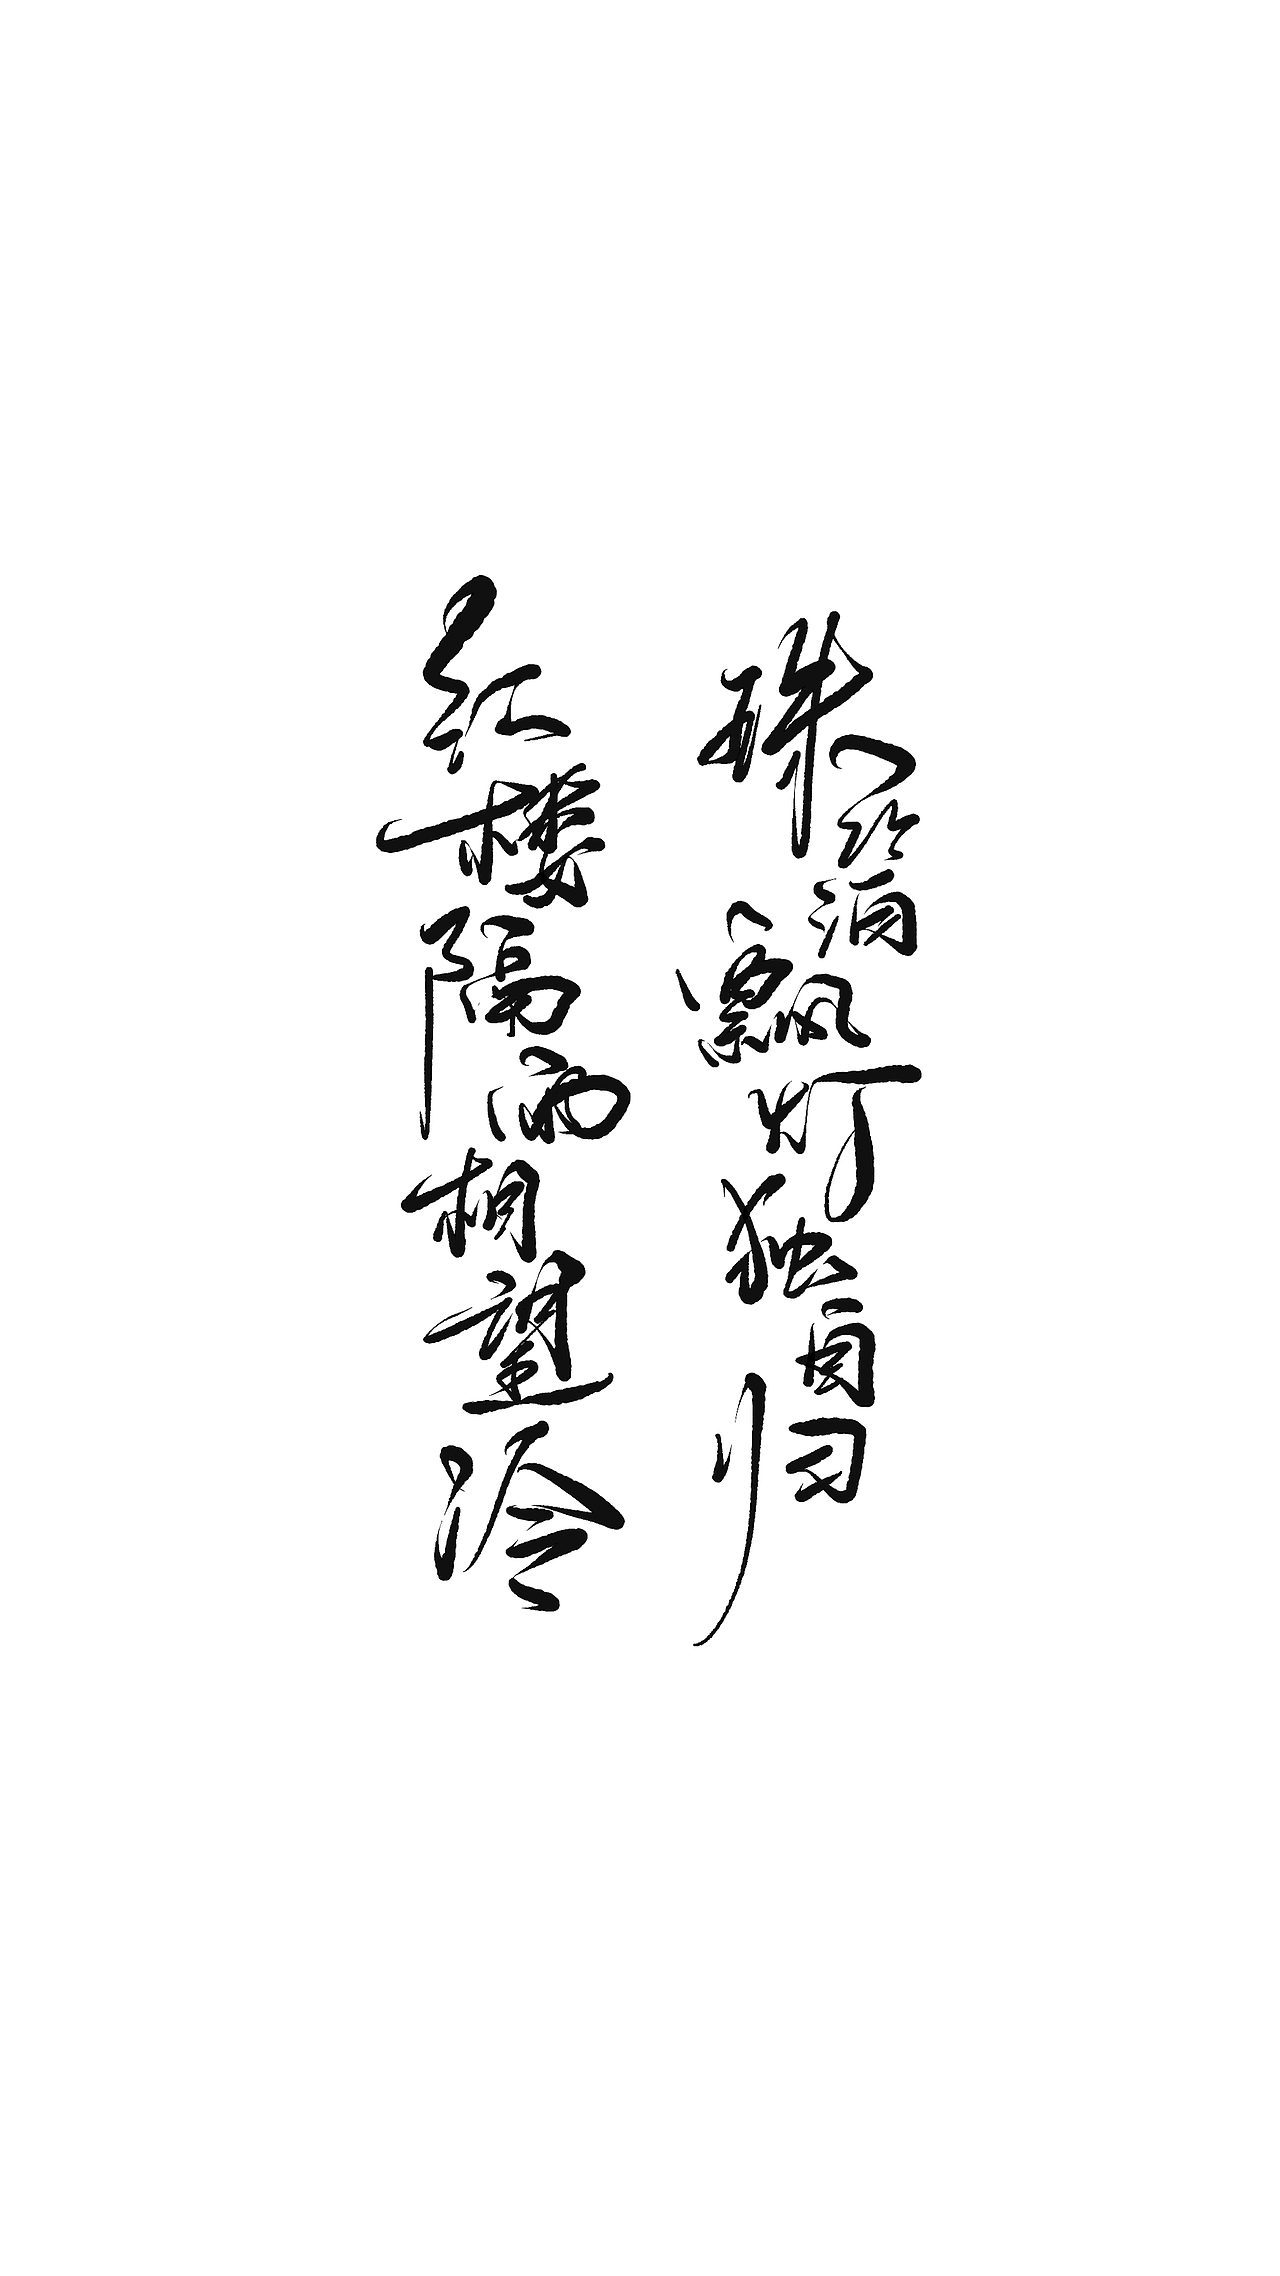 红楼隔雨相望冷
珠箔飘灯独自归